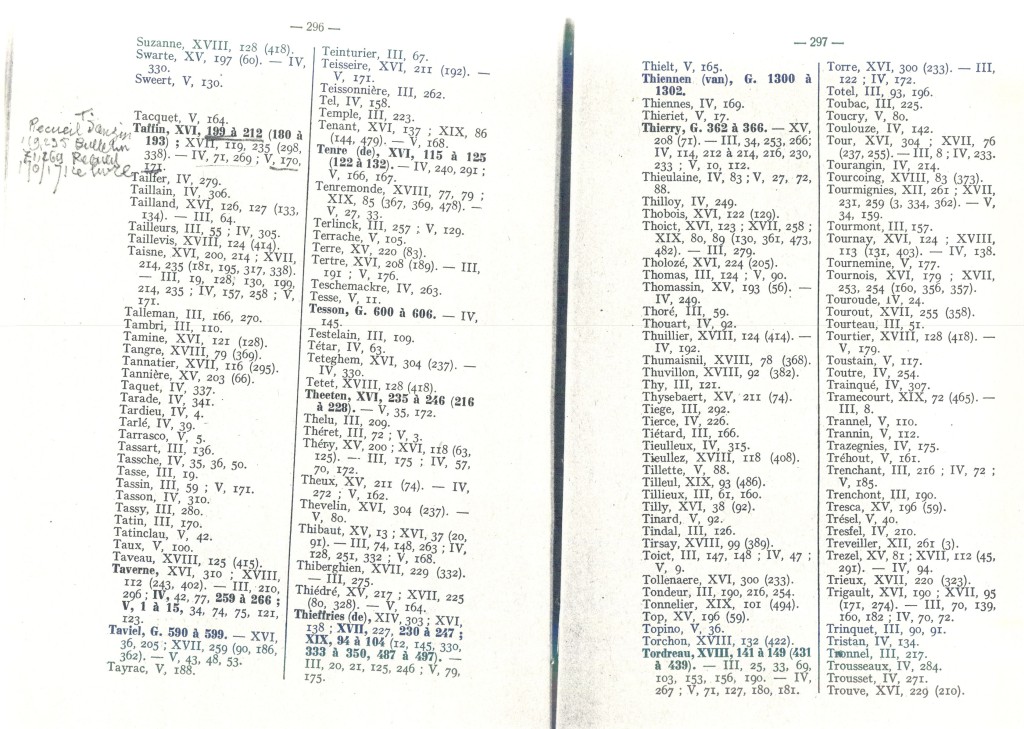 — 296 —
Suzanne, XVIII, 128 (418).
Swarte, XV, 197 (60). — IV,
330.
Sweert, V, 130.
Tacquet, V, 164.
Taffin, XVI, 199 à 212 (180 à
193) ; XVII, 119, 235 (298,
338). — IV, 71, 269 ; V, 170,
171.
Tailfer, IV, 279.
Taillain, IV, 306.
Tailland, XVI, 126, 127 (133,
134). — III, 64.
Tailleurs, III, 55 ; IV, 305.
Taillevis, XVIII, 124 (414).
Taisne, XVI, 200, 214 ; XVII,
214, 235 (181, 195, 317, 338).
— III, 19, 128, 130, 199,
214, 235 ; IV, 157, 258 ; V,
171.
Talleman, III, 166, 270.
Tambri, III, 110.
Tamine, XVI, 121 (128).
Tangre, XVIII, 79 (369).
Tannatier, XVII, 116 (295).
Tannière, XV, 203 (66).
Taquet, IV, 337.
Tarade, IV, 341.
Tardieu, IV, 4.
Tarlé, IV, 39.
Tarrasco, V, 5.
Tassart, III, 136.
Tassche, IV, 35, 36, 50.
Tasse, III, 19.
Tassin, III, 59 ; V, 171.
Tasson, IV, 310.
Tassy, III, 280.
Tatin, III, 170.
Tatinclau, V, 42.
Taux, V, 100.
Taveau, XVIII, 125 (415).
Taverne, XVI, 310 ; XVIII,
112 (243, 402). — III, 210,
296 ; IV, 42, 77, 259 à 266 ;
V, 1 à 15, 34, 74, 75, 121,
123.
Taviel, G. 590 à 599. — XVI,
36, 205 ; XVII, 259 (90, 186,
362). — V, 43, 48, 53.
Tayrac, V, 188.
Teinturier, III, 67.
Teisseire, XVI, 211 (192). —
V, 171.
Teissonnière, III, 262.
Tel, IV, 158.
Temple, III, 223.
Tenant, XVI, 137 ; XIX, 86
(144, 479). — V, 168.
Tenre (de), XVI, 115 à 125
(122 à 132). — IV, 240, 291 ;
V, 166, 167.
Tenremonde, XVIII, 77, 79 ;
XIX, 85 (367, 369, 478). —
V, 27, 33.
Terlinck, III, 257 ; V, 129.
Terrache, V, 105.
Terre, XV, 220 (83).
Tertre, XVI, 208 (189). — III,
191 ; V, 176.
Teschemackre, IV, 263.
Tesse, V, 11.
Tesson, G. 600 à 606. — IV,
145.
Testelain, III, 109.
Tétar, IV, 63.
Teteghem, XVI, 304 (237). —
IV, 330.
Tetet, XVIII, 128 (418).
Theeten, XVI, 235 à 246 (216
à 228). — V, 35, 172.
Thelu, III, 209.
Théret, III, 72 ; V, 3.
Théry, XV, 200 ; XVI, 118 (63,
125). — III, 175 ; IV, 57,
70, 172.
Theux, XV, 211 (74). — IV,
272 ; V, 162.
Thevelin, XVI, 304 (237). —
V, 80.
Thibaut, XV, 13 ; XVI, 37 (20,
91). — III, 74, 148, 263 ; IV,
128, 251, 332 ; V, 168.
Thiberghien, XVII, 229 (332).
— III, 275.
Thiédré, XV, 217 ; XVII, 225
(80, 328). — V, 164.
Thieffries (de), XIV, 303 ; XVI,
138 ; XVII, 227, 230 à 247 ;
XIX, 94 à 104 (12, 145, 330,
333 à 350, 487 à 497). —
III, 20, 21, 125, 246 ; V, 79,
175.
— 297 —
Thielt, V, 165.
Thiennen (van), G. 1300 à
1302.
Thiennes, IV, 169.
Thieriet, V, 17.
Thierry, G. 362 à 366. — XV,
208 (71). — III, 34, 253, 266;
IV, 114, 212 à 214, 216, 230,
233 ; V, 10, 122.
Thieulaine, IV, 83 ; V, 27, 72,
88.
Thilloy, IV, 249.
Thobois, XVI, 122 (129).
Thoict, XVI, 123 ; XVII, 258 ;
XIX, 80, 89 (130, 361, 473,
482). — III, 279.
Tholozé, XVI, 224 (205).
Thomas, III, 124 ; V, 90.
Thomassin, XV, 193 (56). —
IV, 249.
Thoré, III, 59.
Thouart, IV, 92.
Thuillier, XVIII, 124 (414). —
IV, 192.
Thumaisnil, XVIII, 78 (368).
Thuvillon, XVIII, 92 (382).
Thy, III, 121.
Thysebaert, XV, 211 (74).
Tiege, III, 292.
Tierce, IV, 226.
Tiétard, III, 166.
Tieulleux, IV, 315.
Tieullez, XVIII, 118 (408).
Tillette, V, 88.
Tilleul, XIX, 93 (486).
Tillieux, III, 61, 160.
Tilly, XVI, 38 (92).
Tinard, V, 92.
Tindal, III, 126.
Tirsay, XVIII, 99 (389).
Toict, III, 147, 148 ; IV, 47 ;
V, 9.
Tollenaere, XVI, 300 (233).
Tondeur, III, 190, 216, 254.
Tonnelier, XIX, 101 (494).
Top, XV, 196 (59).
Topino, V, 36.
Torchon, XVIII, 132 (422).
Tordreau, XVIII, 141 à 149 (431
à 439). — III, 25, 33, 69,
103, 153, 156, 190. — IV,
267 ; V, 71, 127, 180, 181.
Torre, XVI, 300 (233). — III,
122 ; IV, 172.
Totel, III, 93, 196.
Toubac, III, 225.
Toucry, V, 80.
Toulouze, IV, 142.
Tour, XVI, 304 ; XVII, 76
(237, 255). — III, 8 ; IV, 233.
Tourangin, IV, 214.
Tourcoing, XVIII, 83 (373).
Tourmignies, XII, 261 ; XVII,
231, 259 (3, 334, 362). — V,
34, 159.
Tourmont, III, 157.
Tournay, XVI, 124 ; XVIII,
113 (131, 403). — IV, 138.
Tournemine, V, 177.
Tournois, XVI, 179 ; XVII,
253, 254 (160, 356, 357).
Touroude, IV, 24.
Tourout, XVII, 255 (358).
Tourteau, III, 51.
Tourtier, XVIII, 128 (418). —
V, 179.
Toustain, V, 117.
Toutre, IV, 254.
Trainqué, IV, 307.
Tramecourt, XIX, 72 (465). —
III, 8.
Trannel, V, 110.
Trannin, V, 112.
Trazegnies, IV, 175.
Tréhout, V, 161.
Trenchant, III, 216 ; IV, 72 ;
V, 185.
Trenchont, III, 190.
Tresca, XV, 196 (59).
Trésel, V, 40.
Tresfel, IV, 210.
Treveiller, XII, 261 (3).
Trezel, XV, 81 ; XVII, 112 (45,
291). — IV, 94.
Trieux, XVII, 220 (323).
Trigault, XVI, 190 ; XVII, 95
(171, 274). — III, 70, 139,
160, 182 ; IV, 70, 72.
Trinquet, III, 90, 91.
Tristan, IV, 134.
Tronnel, III, 217.
Trousseaux, IV, 284.
Trousset, IV, 271.
Trouve, XVI, 229 (210).